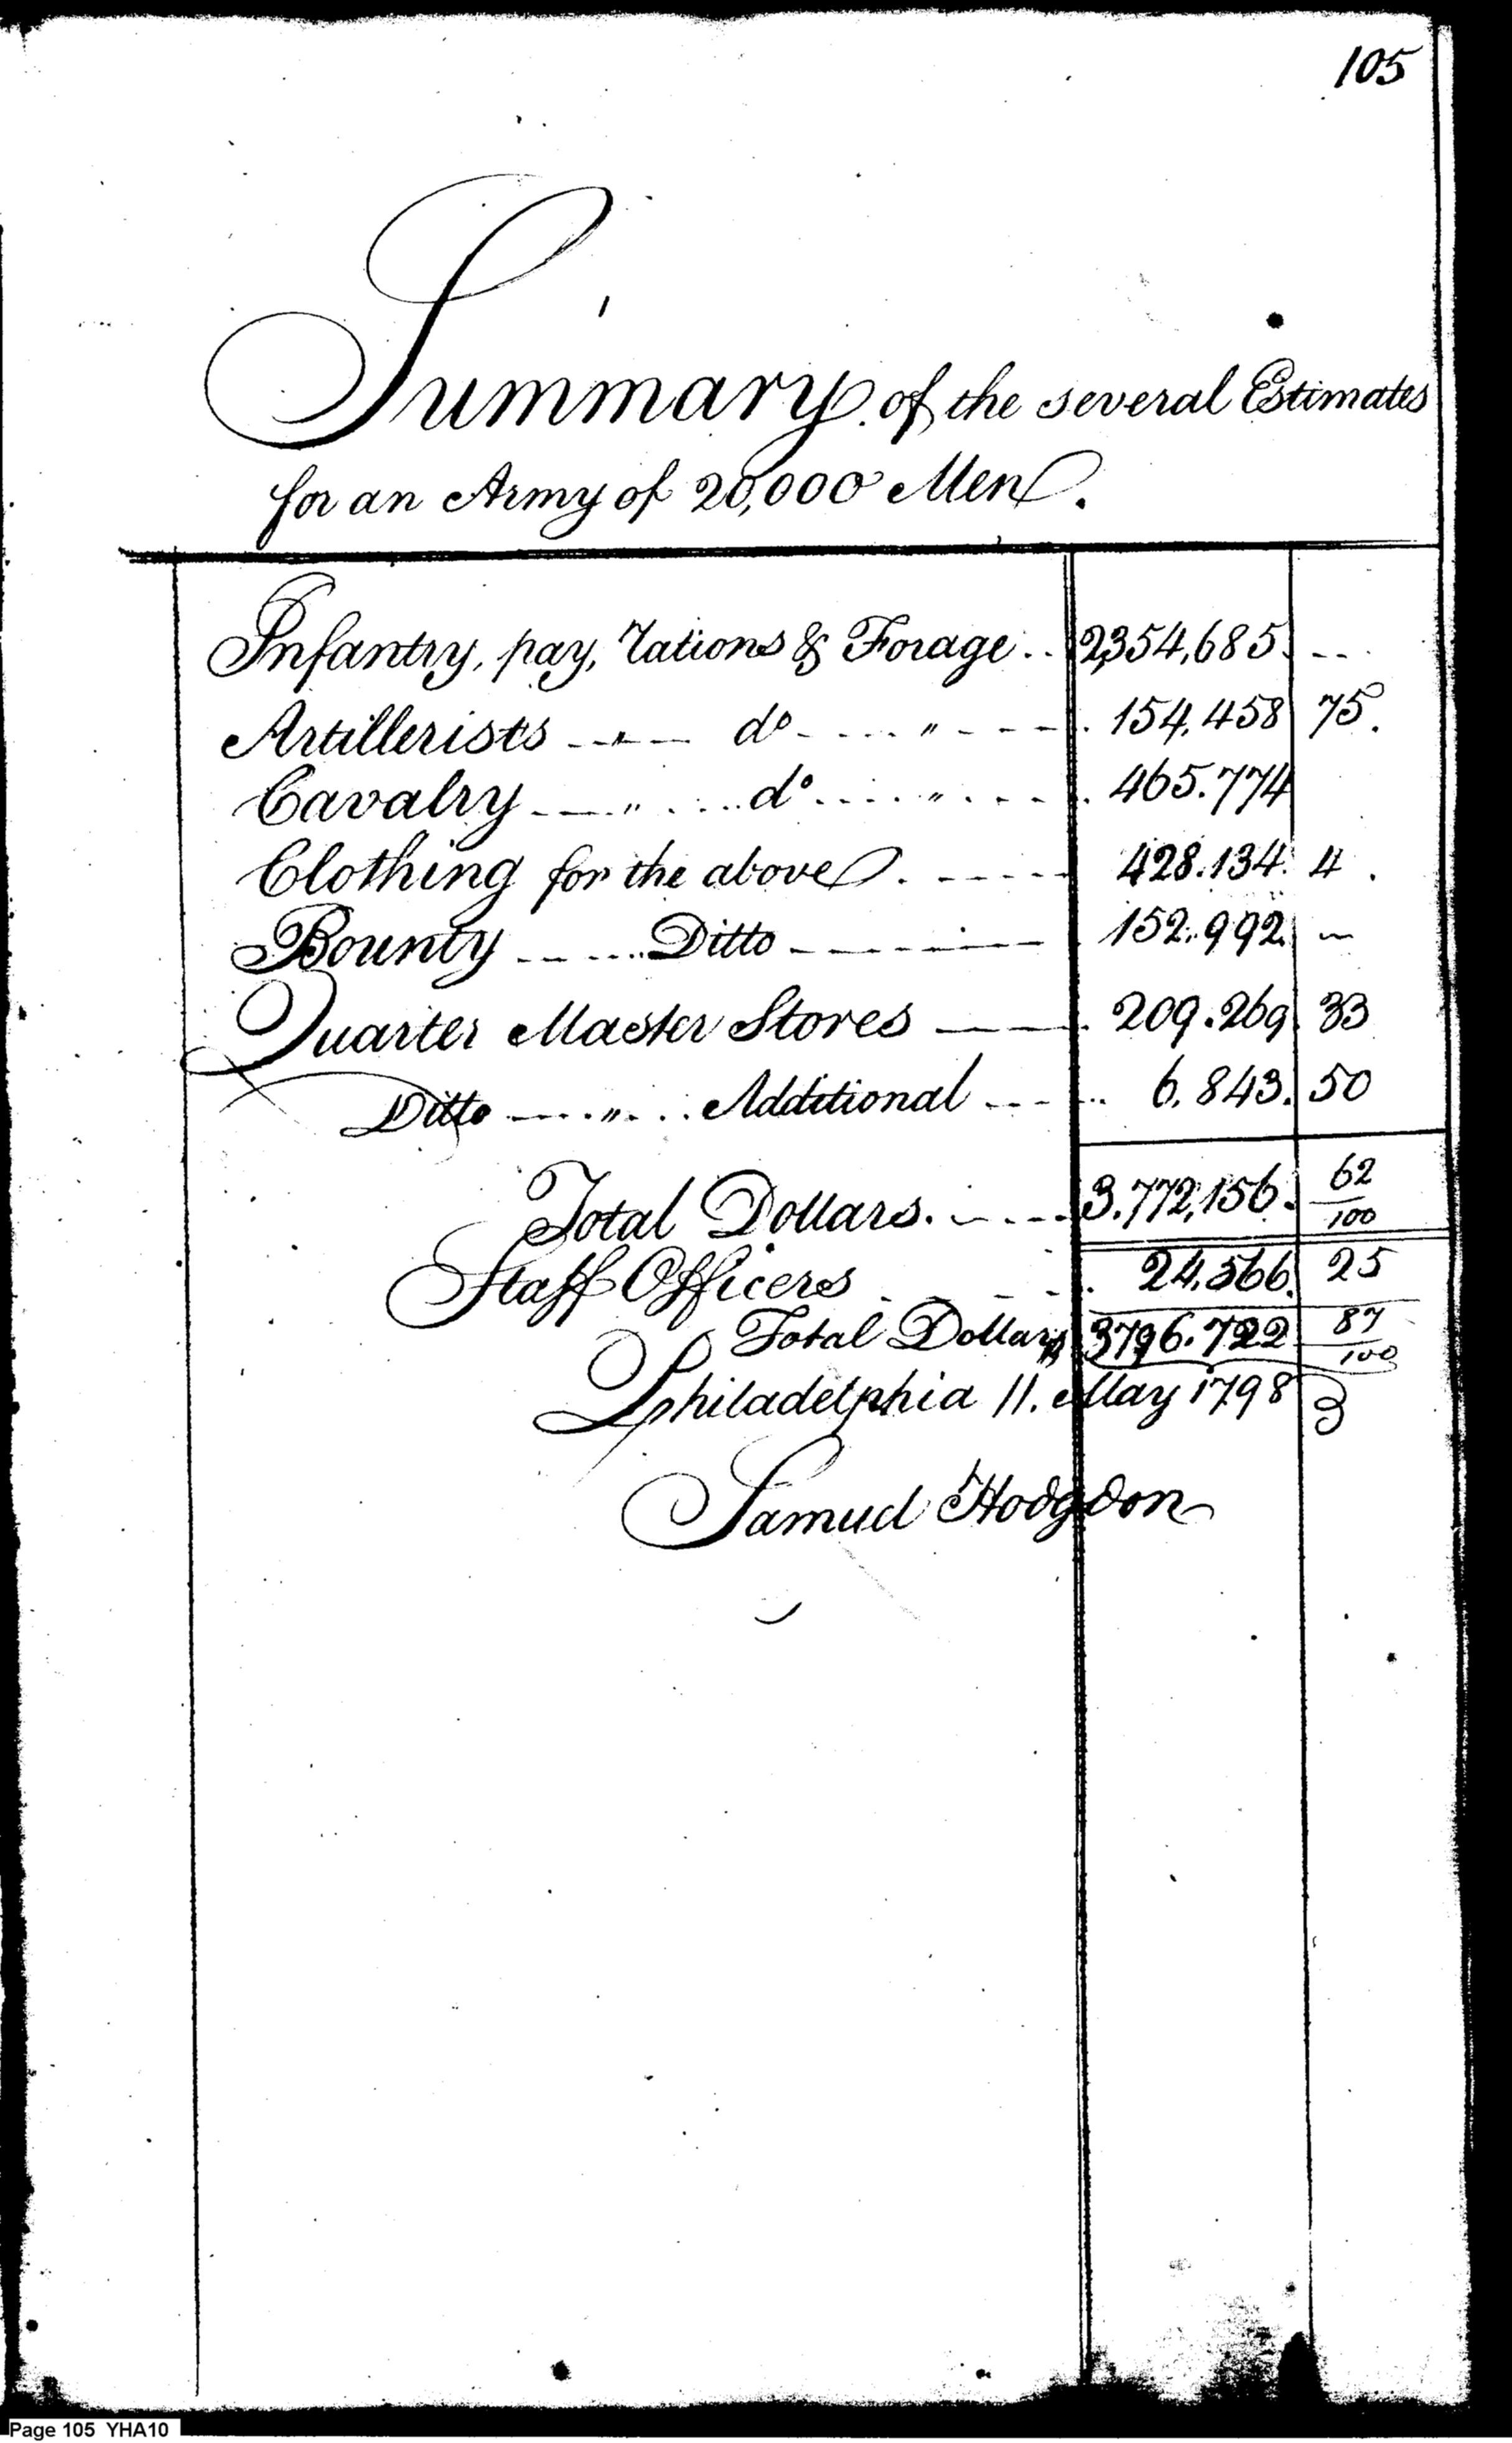 105
Summary of the several Estimates
for an Army of 20,000 Men.
Infantry, pay, rations & Forage .. 2,354,685. ---
Artillerists -"- do - .... " - - - . 154,458 75.
Cavalry -- " .... do .... " . . - . 465.774
Clothing for the above. ----- 428.134. 4.
Bounty ...... Ditto ------ 152.992. ~
Quarter Master Stores --- . 209.269. 33
Ditto ---- " ... Additional --- .. 6.843. 50
Total Dollars. ----- 3.772,156. 62/100
Staff Officers . - - - . 24.566. 25
Total Dollars 3796.722 87/100
Philadelphia 11. May 1798
Samuel Hodgdon
Page 105 YHA10